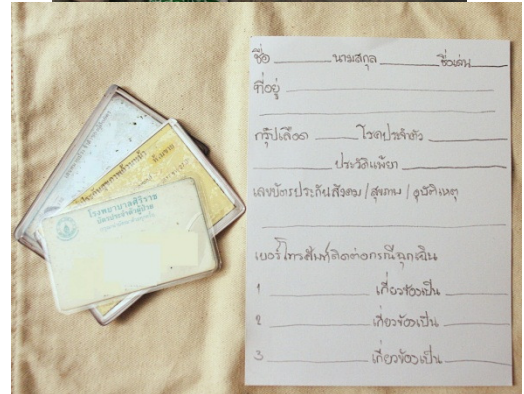 โรงพยาบาลศิริราช
บัตรประจำตัวผู้ป่วย
ชื่อ ________ นามสกุล ________ ชื่อเล่น ________
ที่อยู่ ________
กรุ๊ปเลือด ________ โรคประจำตัว
________ ประวัติแพ้ยา ________
เลขบัตรประกันสังคม / สุขภาพ / อุบัติเหตุ
เบอร์โทรศัพท์ติดต่อกรณีฉุกเฉิน
1 ________ เกี่ยวข้องเป็น ________
2 ________ เกี่ยวข้องเป็น ________
3 ________ เกี่ยวข้องเป็น ________